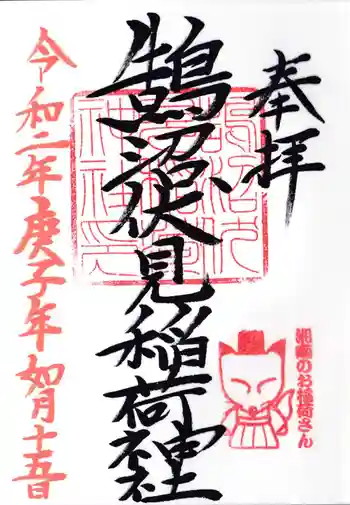 奉拝
鵠沼伏見稲荷神社
湘南のお稲荷さん
令和二年庚子年如月十五日